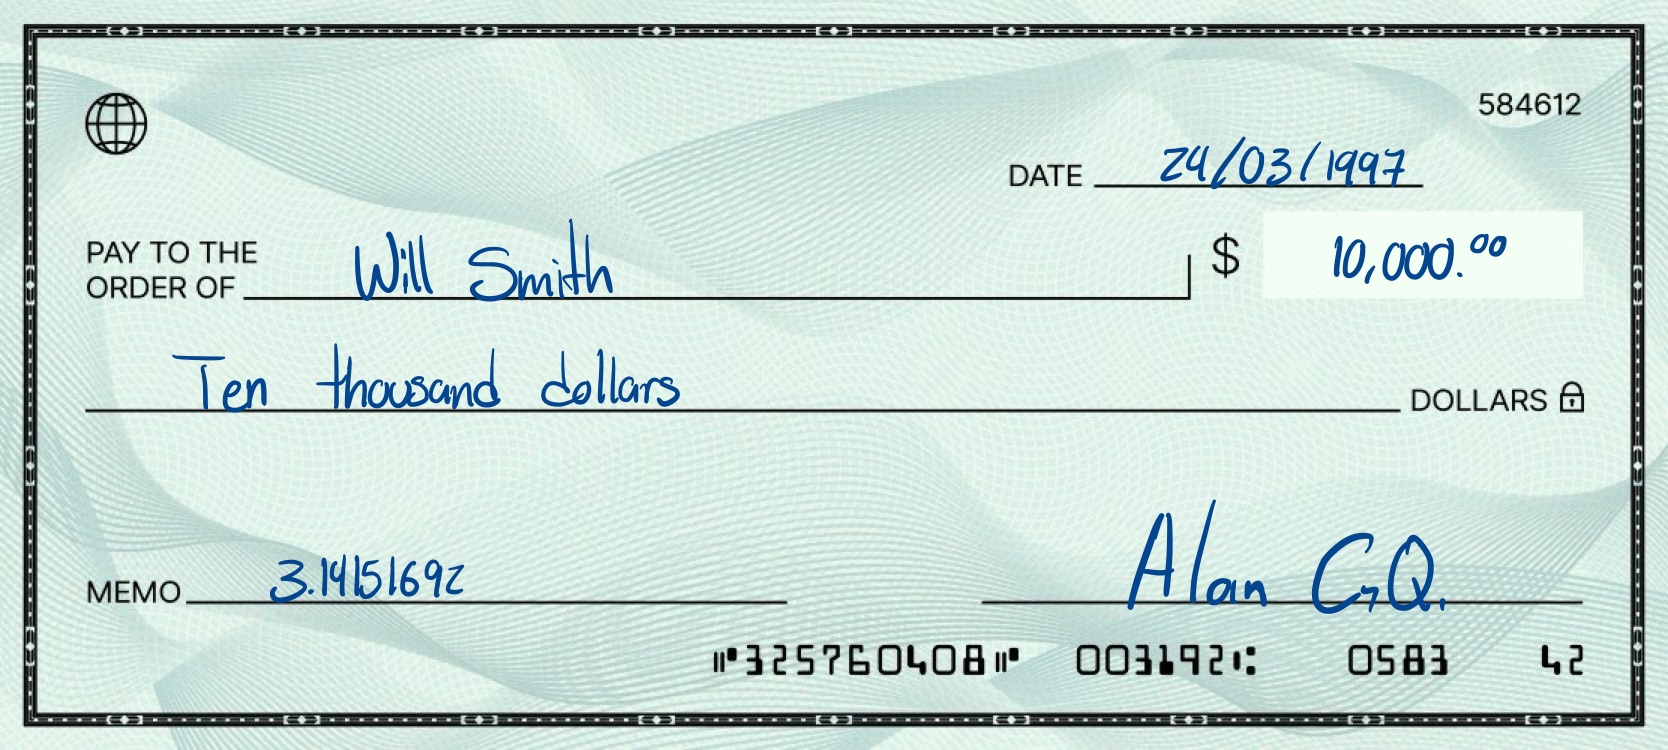 584612
DATE 24/03/1997
PAY TO THE
ORDER OF Will Smith $ 10,000.00
Ten thousand dollars DOLLARS
MEMO 3.14151692 Alan G.Q.
⑈325760408⑈ 003192⑆ 0583 42